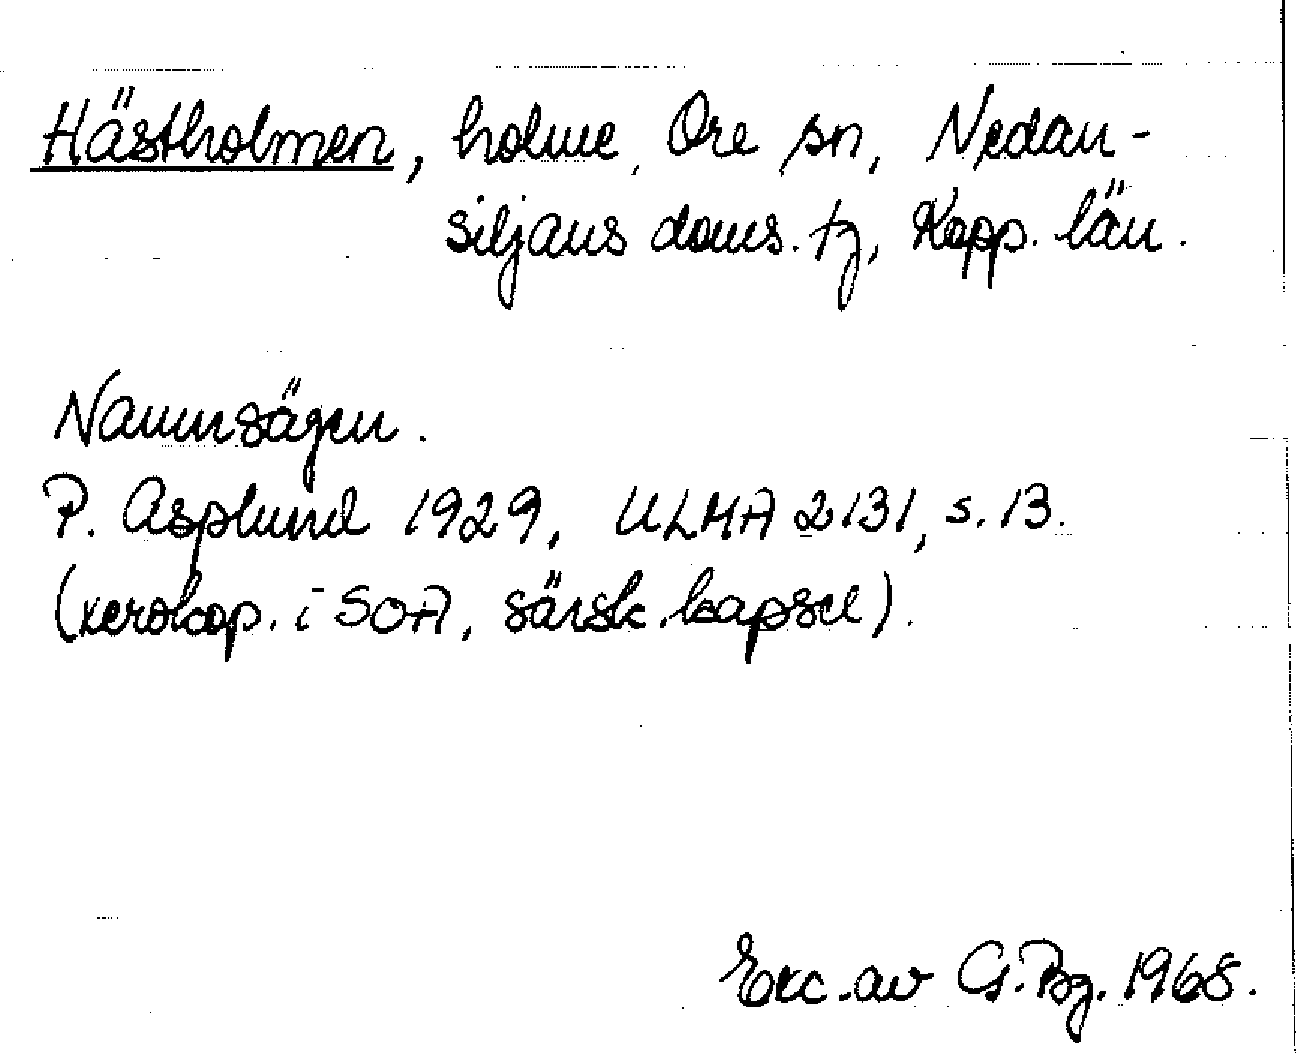 Hästholmen, holme, Ore sn, Nedan-
siljans doms. tg, Kopp. län.
Namnsägen.
P. Asplund 1929, ULMA 2131, s. 13.
(xerokop. i SOA, särsk. kapsel).
Exc. av G. Bg. 1968.